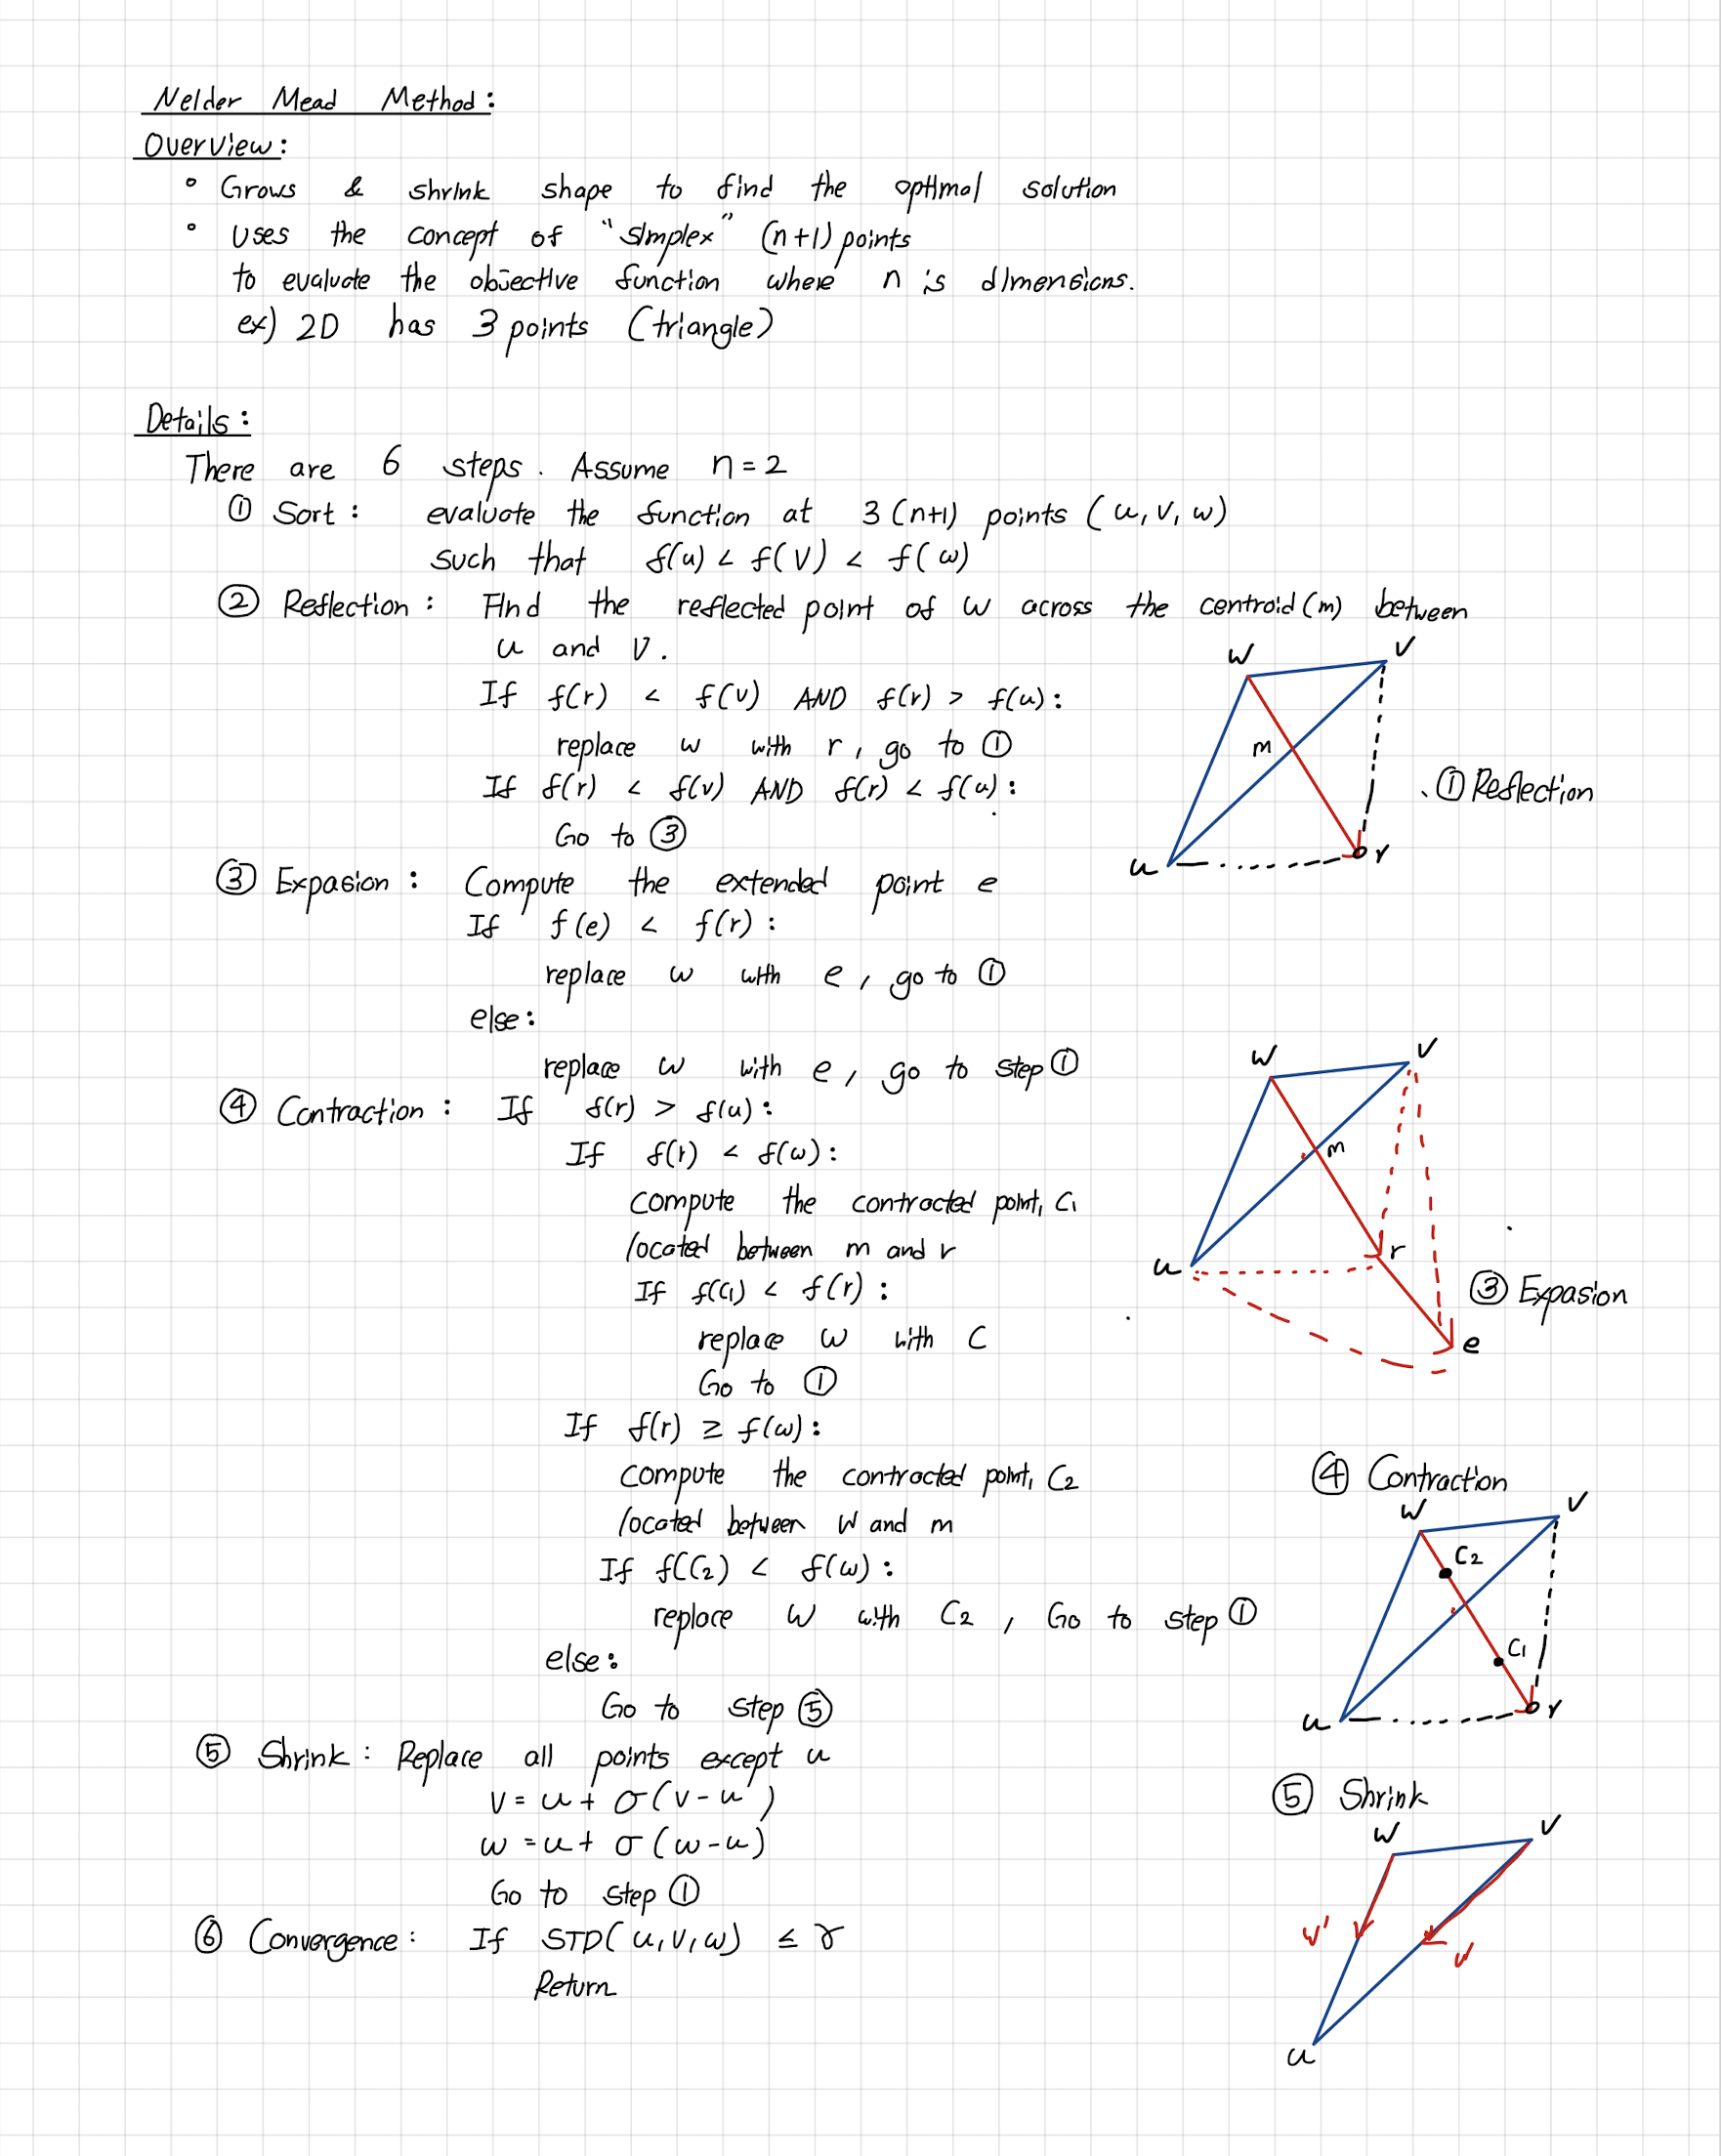 Nelder Mead Method:
Overview:
° Grows & shrink shape to find the optimal solution
° uses the concept of "simplex" (n+1) points
to evaluate the objective function where n is dimensions.
ex) 2D has 3 points (triangle)
Details:
There are 6 steps. Assume n=2
① Sort: evaluate the function at 3 (n+1) points (u, v, w)
such that f(u) < f(v) < f(w)
② Reflection: Find the reflected point of w across the centroid (m) between
u and v.
If f(r) < f(v) AND f(r) > f(u):
replace w with r, go to ①
If f(r) < f(v) AND f(r) < f(u):
Go to ③
w
v
m
u
r
① Reflection
③ Expasion: Compute the extended point e
If f(e) < f(r):
replace w with e, go to ①
else:
replace w with e, go to step ①
w
v
m
u
r
e
③ Expasion
④ Contraction: If f(r) > f(u):
If f(r) < f(w):
compute the contracted point, C1
located between m and r
If f(C1) < f(r):
replace w with C
Go to ①
If f(r) ≥ f(w):
compute the contracted point, C2
located between w and m
If f(C2) < f(w):
replace w with C2, Go to step ①
else:
Go to step ⑤
④ Contraction
w
v
C2
C1
u
r
⑤ Shrink: Replace all points except u
v = u + σ(v - u)
w = u + σ(w - u)
Go to step ①
⑤ Shrink
w
v
w'
v'
u
⑥ Convergence: If STD(u, v, w) ≤ γ
Return